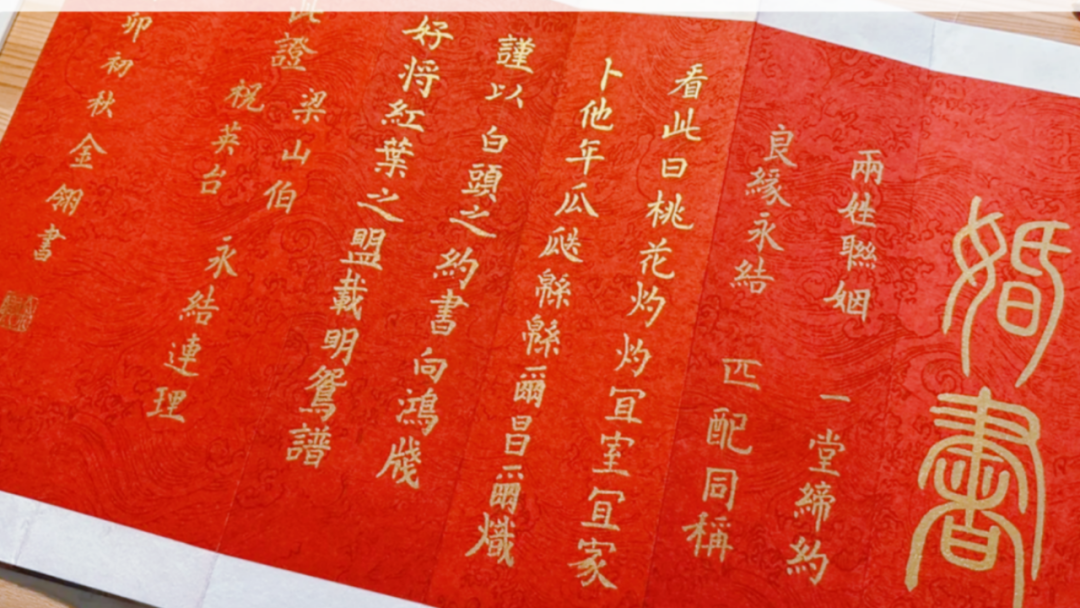 婚書
兩姓聯姻 一堂締約
良緣永結 匹配同稱
看此日桃花灼灼宜室宜家
卜他年瓜瓞緜緜爾昌爾熾
謹以白頭之約書向鴻牋
好将紅葉之盟載明鴛譜
此證
梁山伯
祝英台 永結連理
卯初秋金翎書